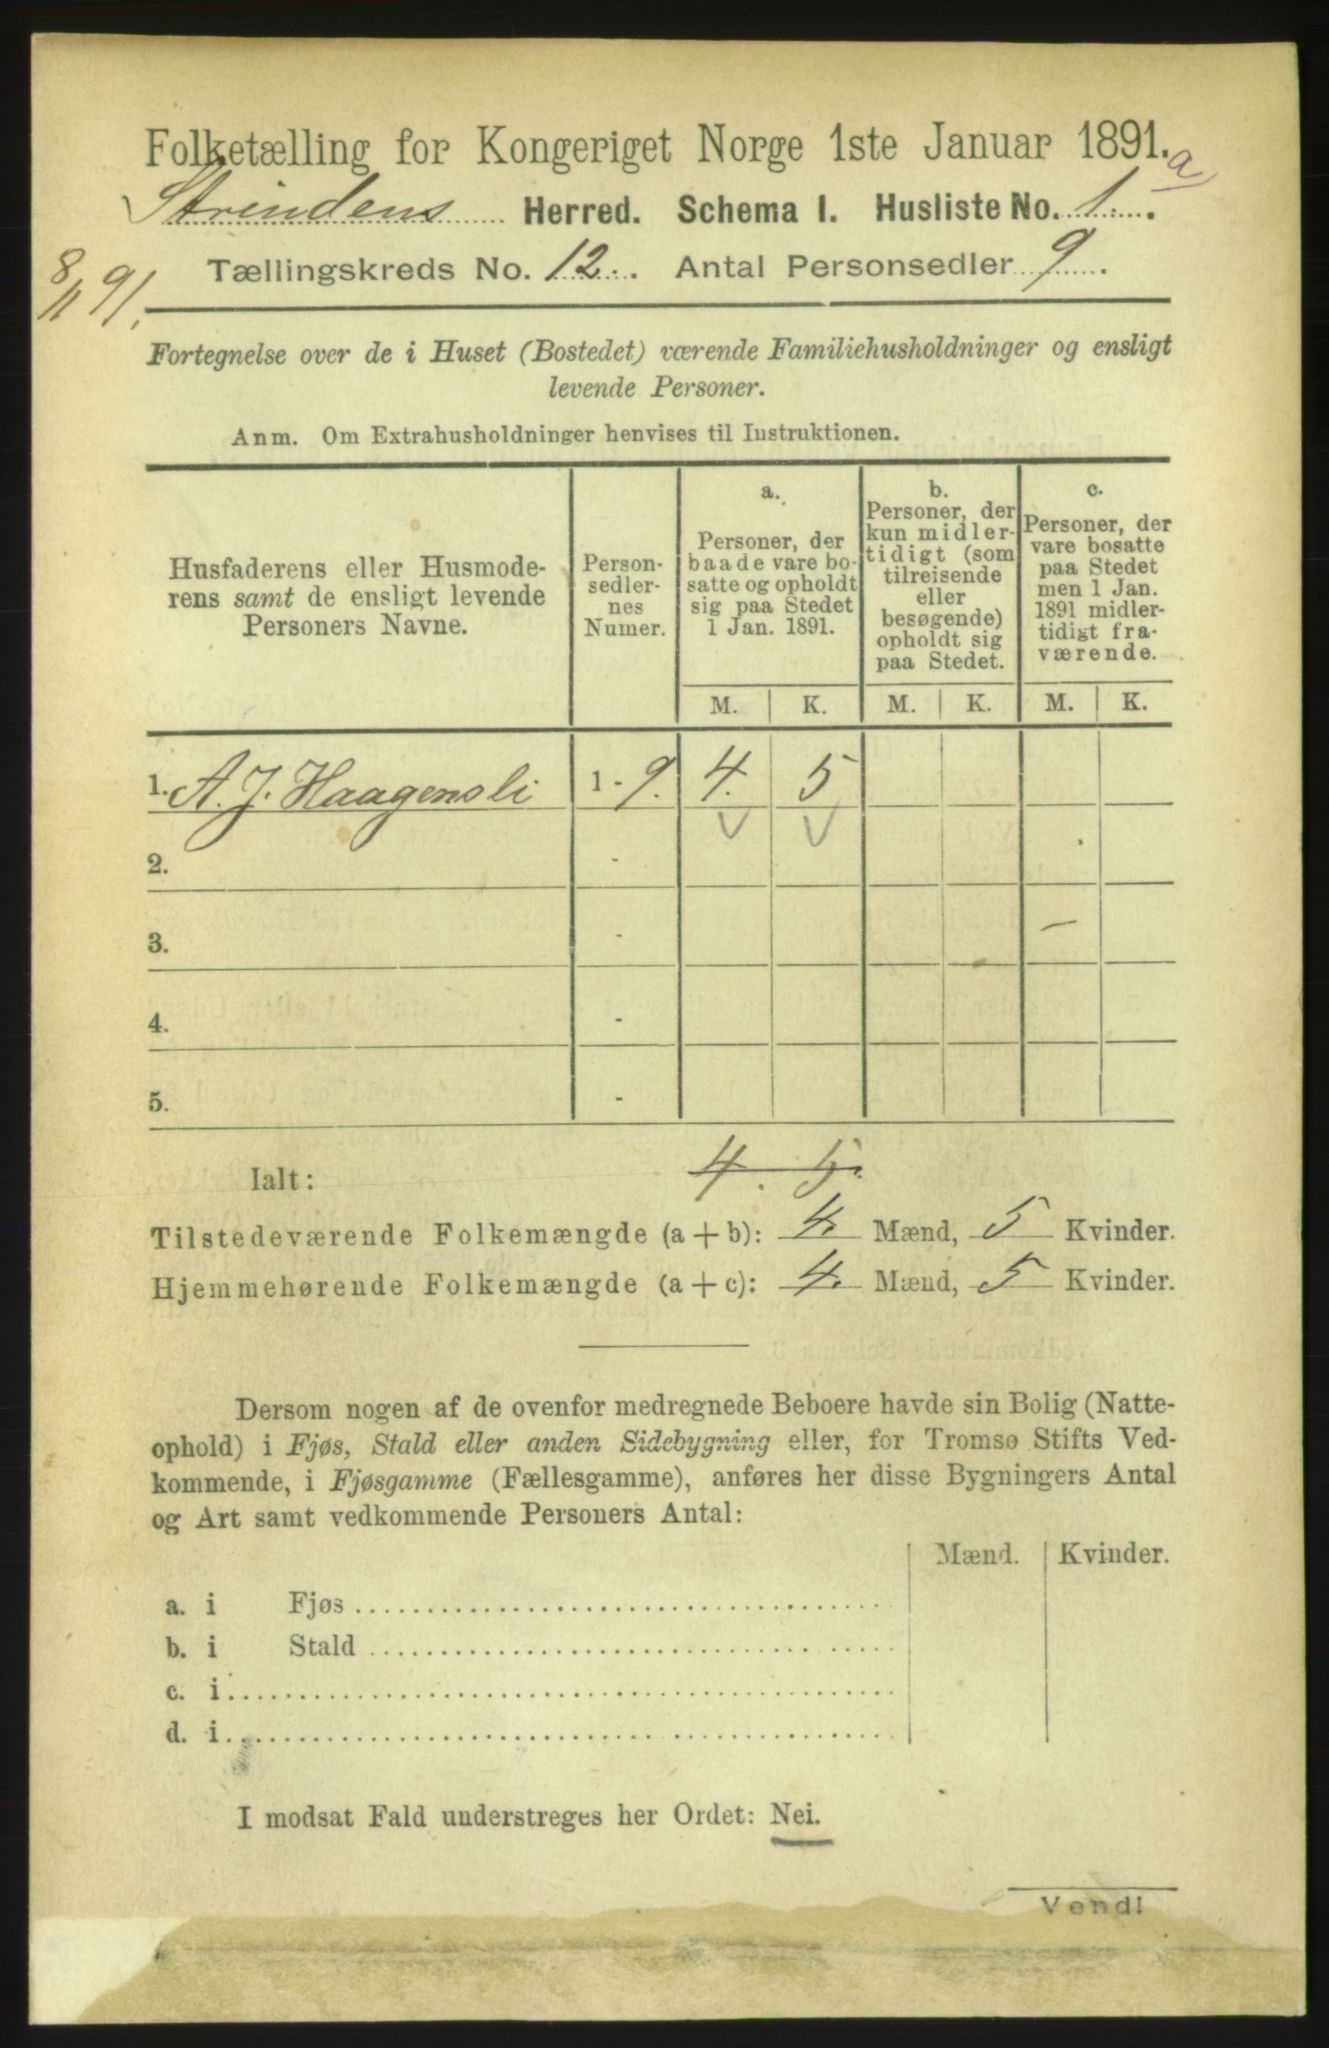 Folketælling for Kongeriget Norge 1ste Januar 1891.
Strindens Herred. Schema I. Husliste No. 1. a
8/1 91.
Tællingskreds No. 12. Antal Personsedler 9.
Fortegnelse over de i Huset (Bostedet) værende Familiehusholdninger og ensligt
levende Personer.
Anm. Om Extrahusholdninger henvises til Instruktionen.
Husfaderens eller Husmode-
rens samt de ensligt levende
Personers Navne.
Person-
sedler-
nes
Numer.
a.
Personer, der
baade vare bo-
satte og opholdt
sig paa Stedet
1 Jan. 1891.
b.
Personer, der
kun midler-
tidigt (som
tilreisende
eller
besøgende)
opholdt sig
paa Stedet.
c.
Personer, der
vare bosatte
paa Stedet
men 1 Jan.
1891 midler-
tidigt fra-
værende.
M. K. M. K. M. K.
1. A. J. Haagensli 1 - 9. 4. 5
2. -
3. -
4. -
5. -
Ialt: 4. 5.
Tilstedeværende Folkemængde (a + b): 4. Mænd, 5 Kvinder.
Hjemmehørende Folkemængde (a + c): 4. Mænd, 5 Kvinder.
Dersom nogen af de ovenfor medregnede Beboere havde sin Bolig (Natte-
ophold) i Fjøs, Stald eller anden Sidebygning eller, for Tromsø Stifts Ved-
kommende, i Fjøsgamme (Fællesgamme), anføres her disse Bygningers Antal
og Art samt vedkommende Personers Antal:
Mænd. Kvinder.
a. i Fjøs
b. i Stald
c. i
d. i
I modsat Fald understreges her Ordet: Nei.
Vend!